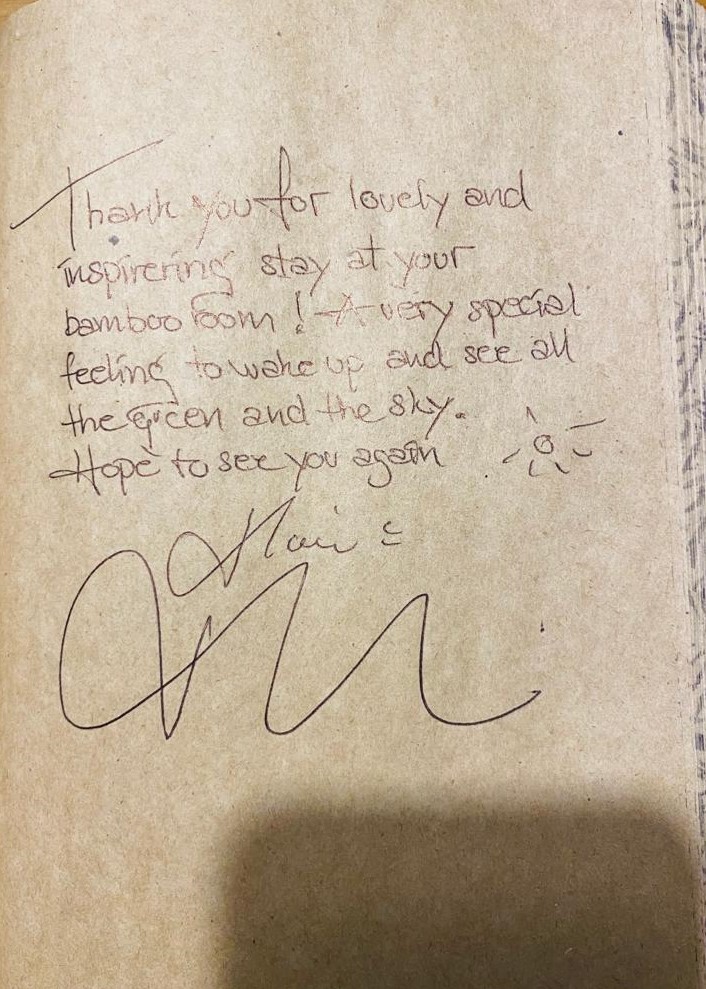 Thank you for lovely and
inspirering stay at your
bamboo room! A very special
feeling to wake up and see all
the green and the sky.
Hope to see you again